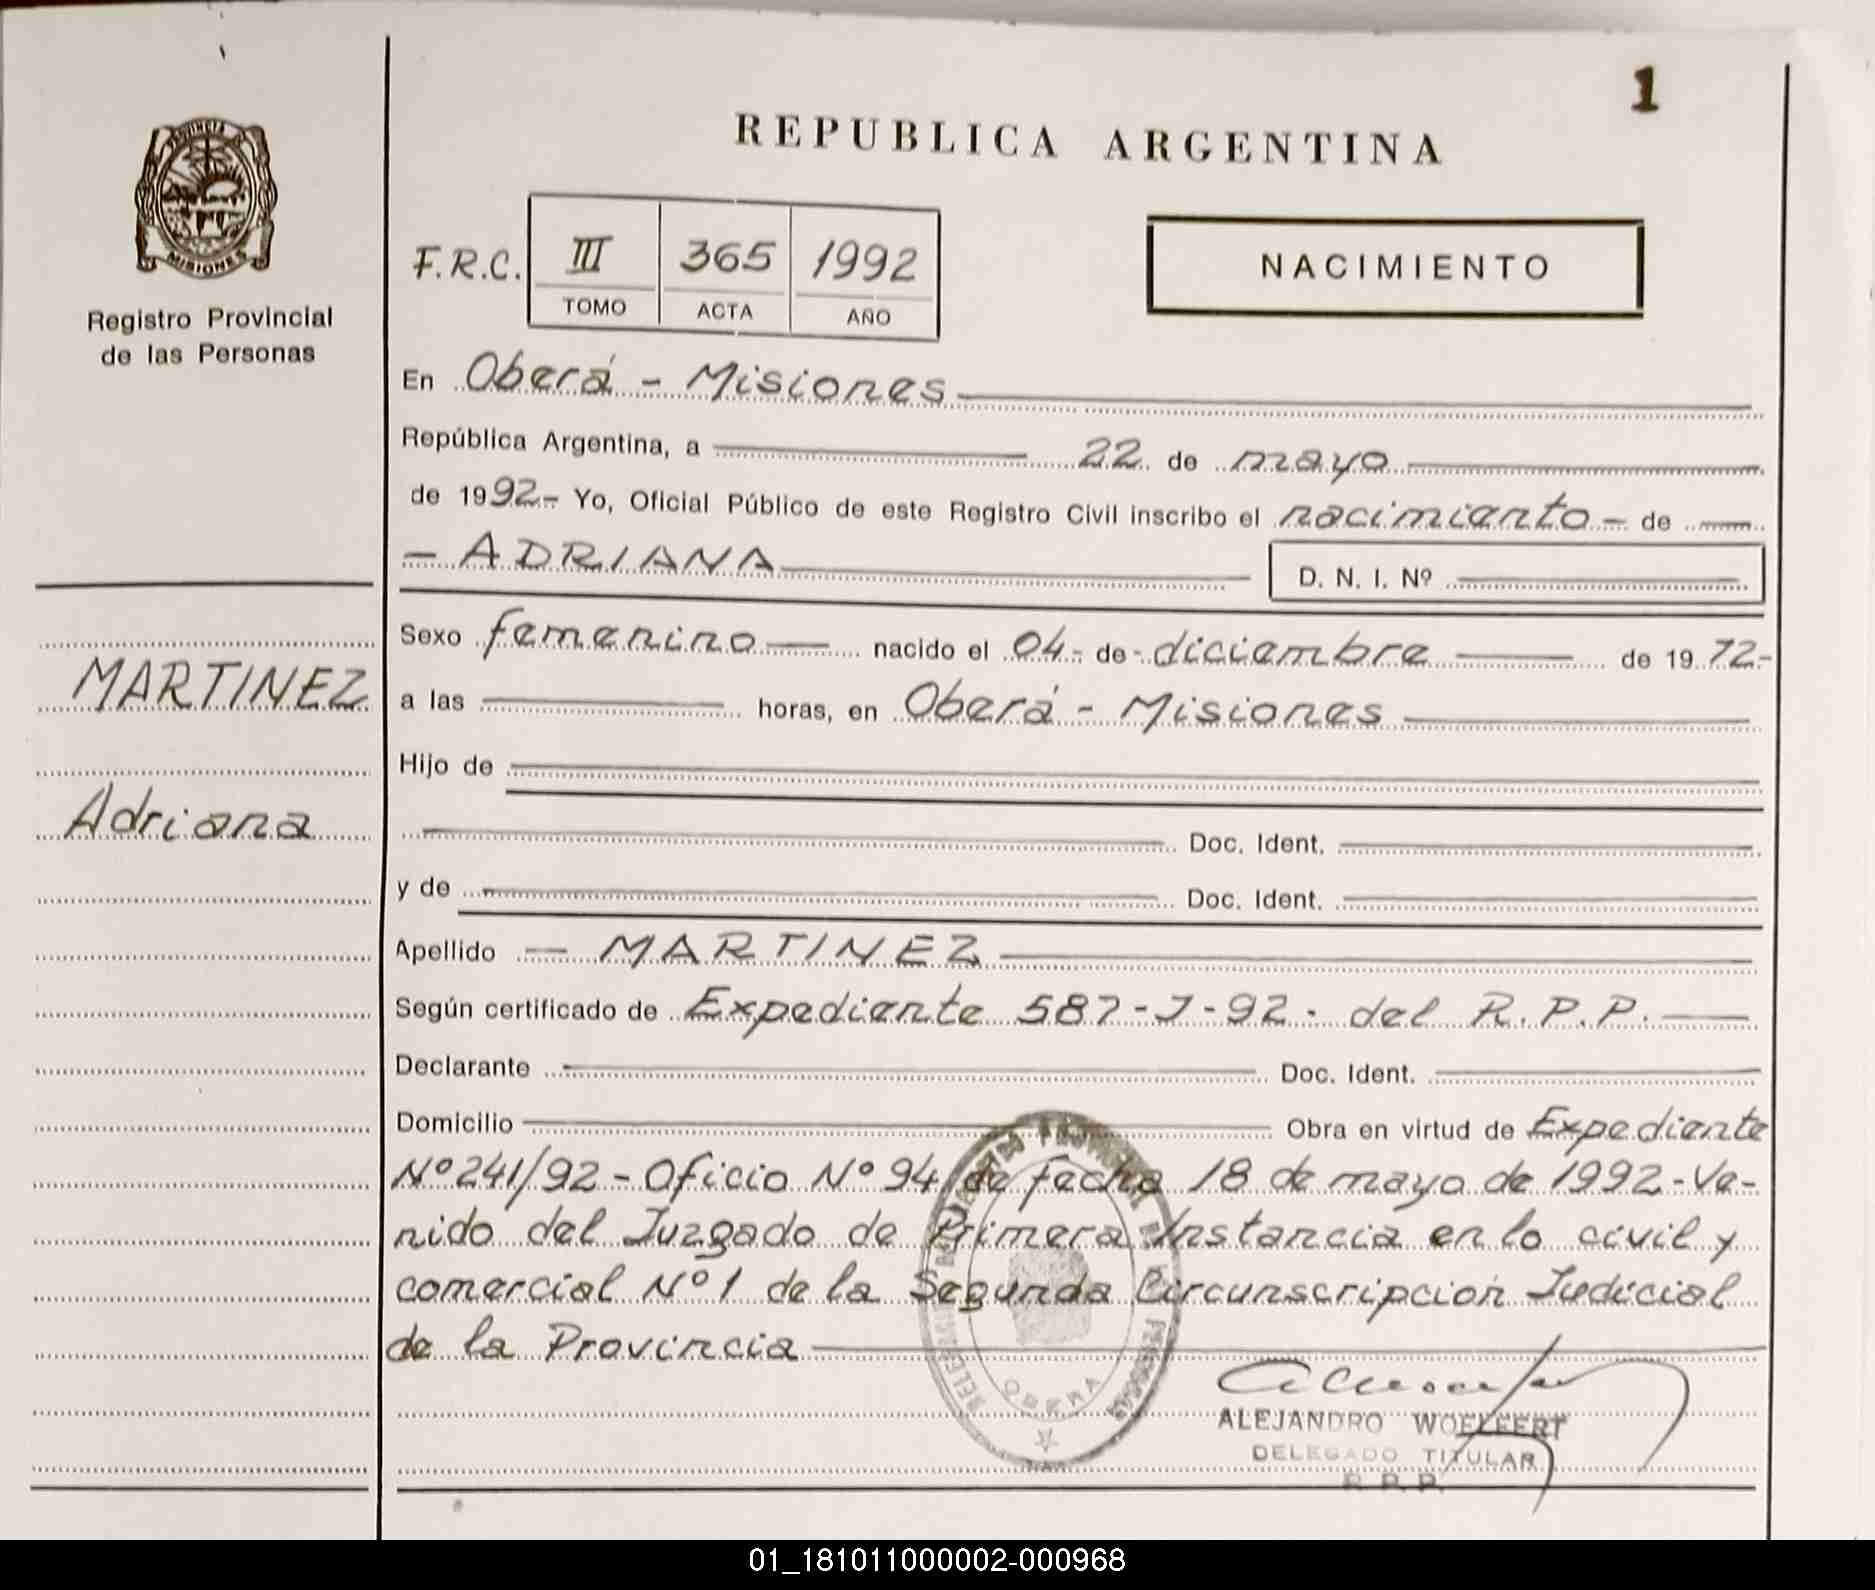 1
REPUBLICA ARGENTINA
PROVINCIA
MISIONES
Registro Provincial
de las Personas
F.R.C. III 365 1992
TOMO ACTA AÑO
NACIMIENTO
En Oberá - Misiones
República Argentina, a 22 de mayo
de 1992.- Yo, Oficial Público de este Registro Civil inscribo el nacimiento - de
- ADRIANA D. N. I. Nº
Sexo femenino nacido el 04 - de - diciembre de 1972.-
a las horas, en Oberá - Misiones
Hijo de
Doc. Ident.
y de Doc. Ident.
Apellido - MARTINEZ
Según certificado de Expediente 587-J-92. del R.P.P.
Declarante Doc. Ident.
Domicilio Obra en virtud de Expediente
Nº 241/92 - Oficio Nº 94 de fecha 18 de mayo de 1992 - Ve-
nido del Juzgado de Primera Instancia en lo civil y
comercial Nº 1 de la Segunda Circunscripción Judicial
de la Provincia
MARTINEZ
Adriana
OBERA
ALEJANDRO WOELFERT
DELEGADO TITULAR
R. P. P.
01_181011000002-000968